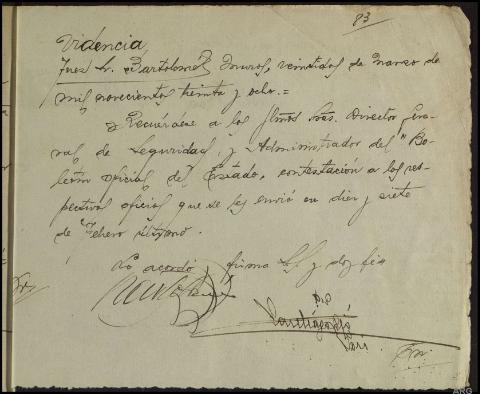 83
Videncia,
Juez Sr. Bartolomé
Muros, veintidos de Marzo de
mil novecientos treinta y ocho.=
Recuérdese a los Ilmos Sres. Director Gene-
ral de Seguridad, y Administrador del "Bo-
letin oficial del Estado, contestación a los res-
pectivos oficios que se les envió en diez y siete
de Febrero último.
Lo acordó firma S.S. y doy fe=
ARG